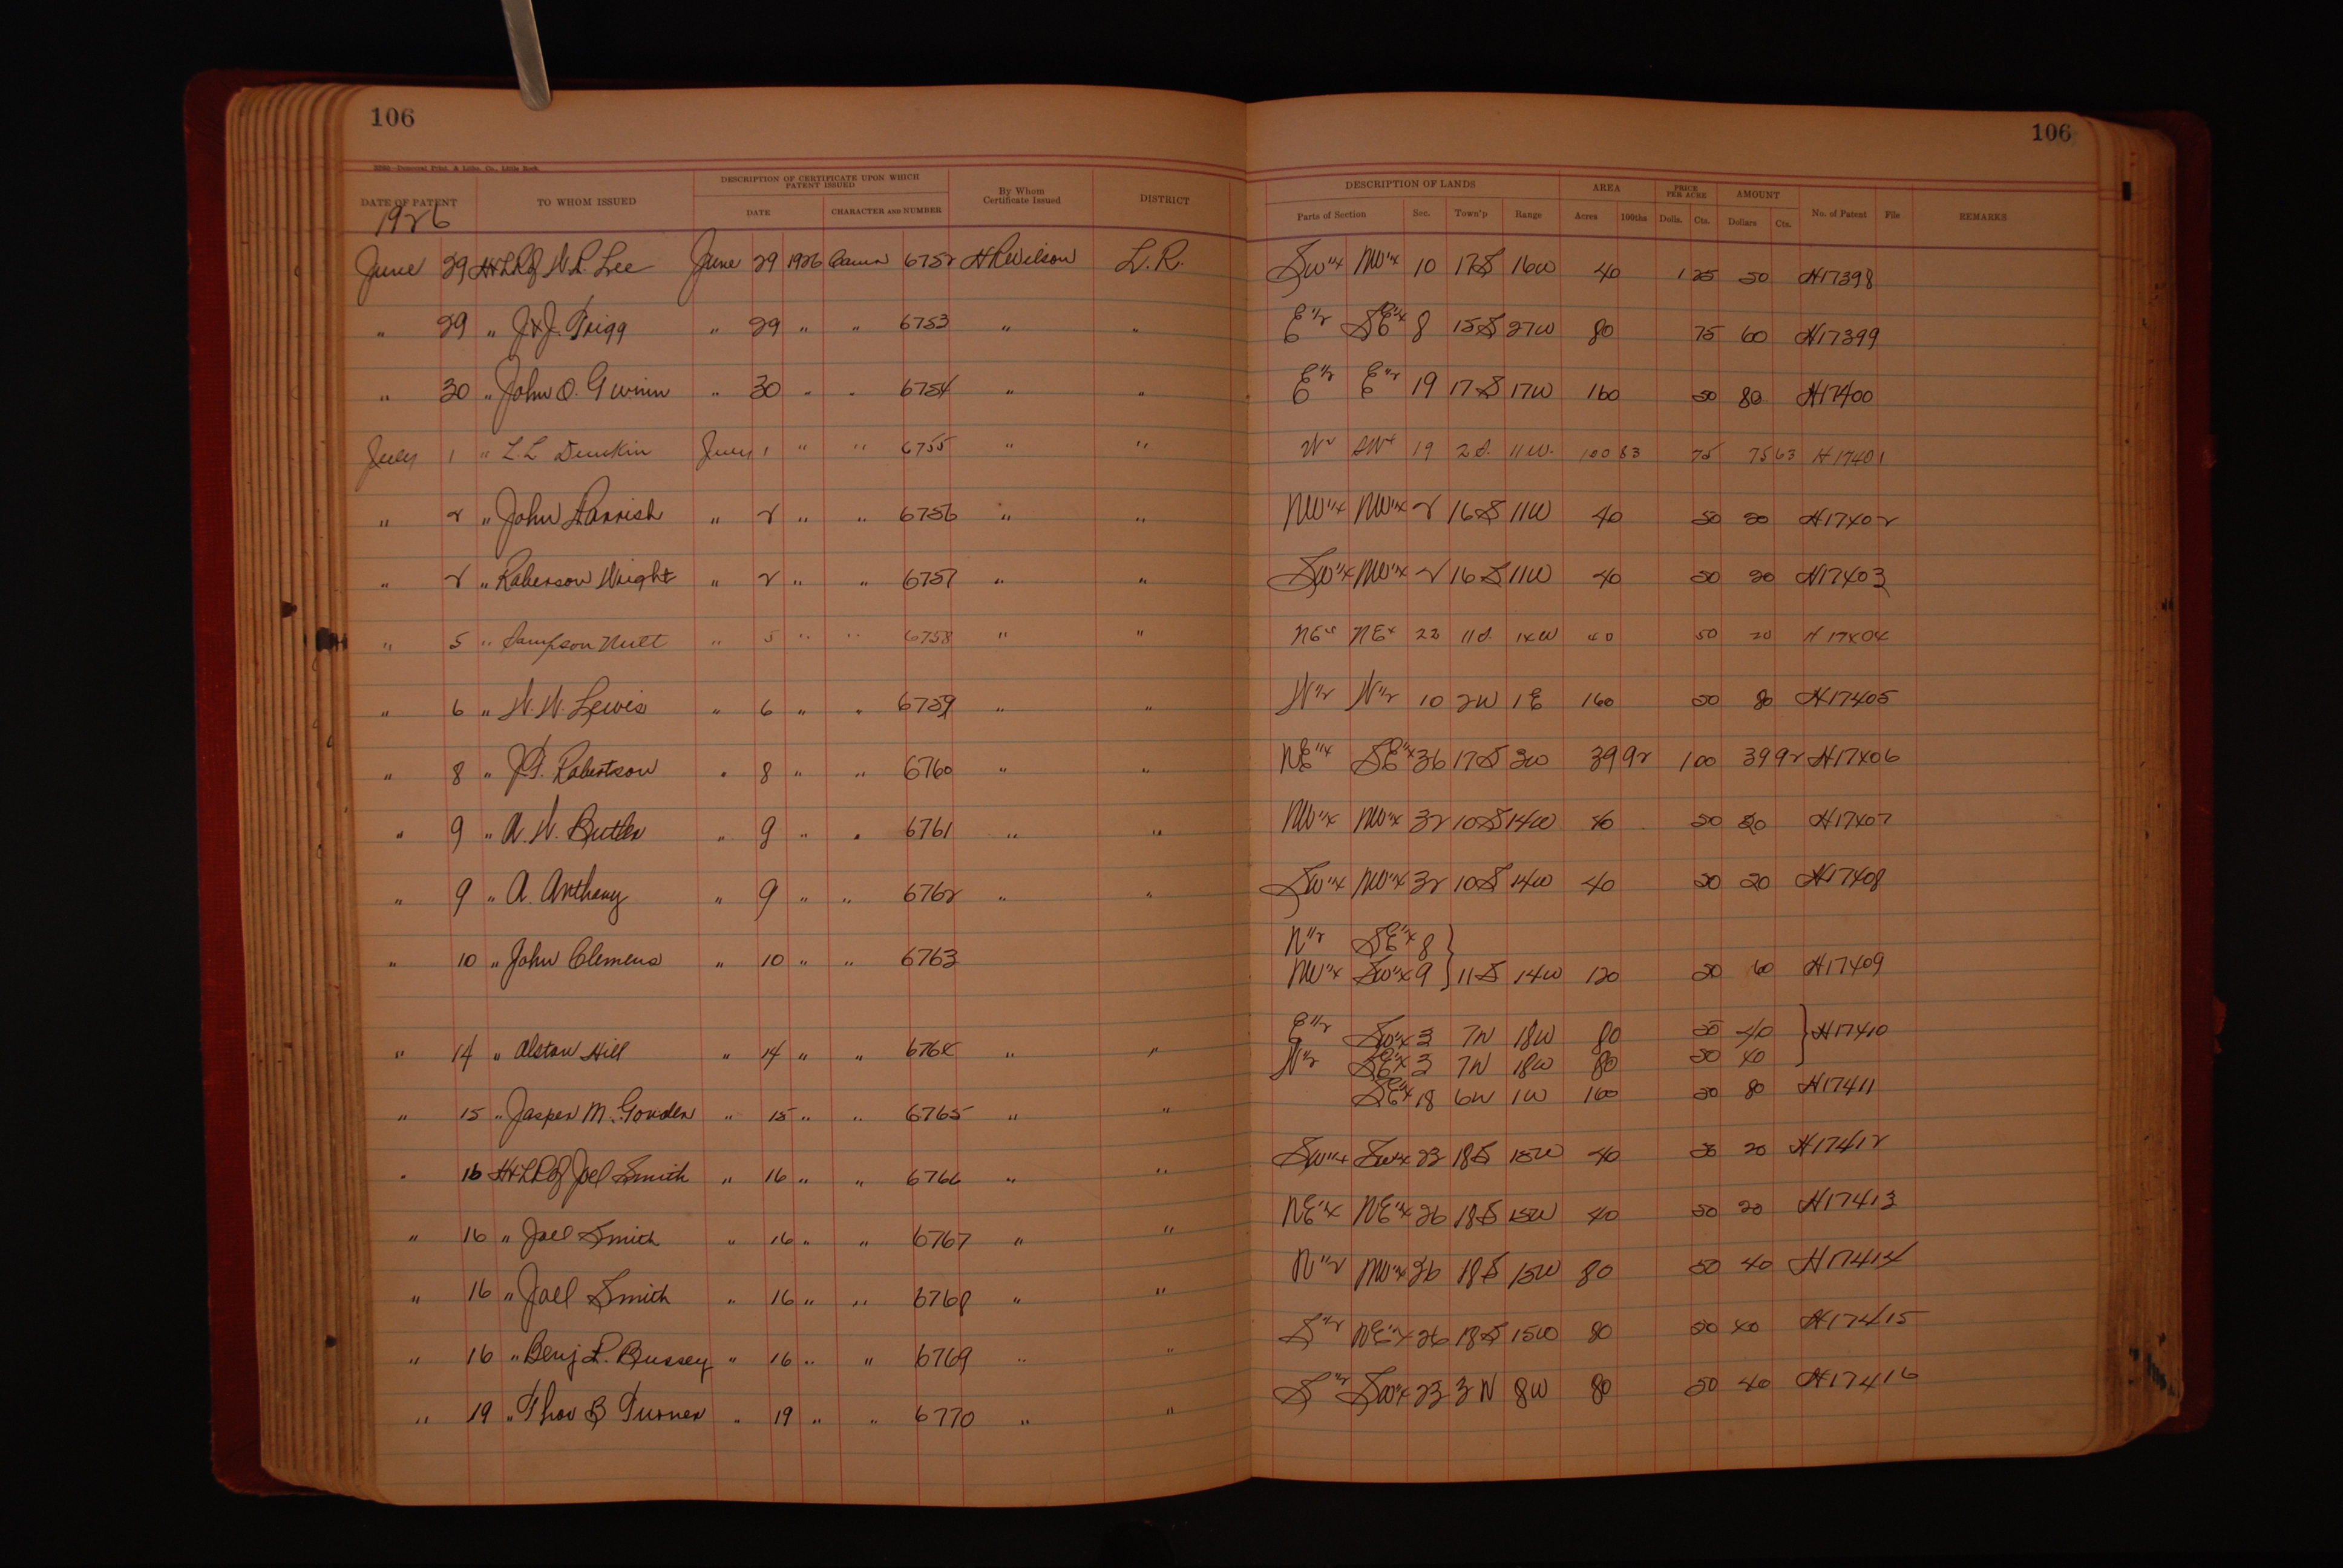 106
106
DATE OF PATENT TO WHOM ISSUED DESCRIPTION OF CERTIFICATE UPON WHICH PATENT ISSUED DATE CHARACTER AND NUMBER By Whom Certificate Issued DISTRICT DESCRIPTION OF LANDS Parts of Section Sec. Town'p Range AREA Acres 100ths PRICE PER ACRE Dolls. Cts. AMOUNT Dollars Cts. No. of Patent File REMARKS
1926
June 29 H&LR of W.R. Lee June 29 1926 6752 HRWilson L.R. SW"4 NW"4 10 17S 16W 40 1 25 50 H17398
" 29 " J&J. Trigg " 29 " " 6753 " " E"2 SE"4 8 15S 27W 80 75 60 H17399
" 30 " John O. Gwinn " 30 " " 6754 " " E"2 E"2 19 17S 17W 160 50 80 H17400
July 1 " L.L Dunkin July 1 " " 6755 " " 19 2S. 11W. 100 83 75 75 63 H17401
" 2 " John Parrish " 2 " " 6756 " " NW"4 NW"4 2 16S 11W 40 50 20 H17402
" 2 " Roberson Wright " 2 " " 6757 " " SW"4 NW"4 2 16S 11W 40 50 20 H17403
" 5 " Sampson Nutt " 5 " " 6758 " " NE4 NE4 22 11S. 14W 40 50 20 H17404
" 6 " W.W. Lewis " 6 " " 6759 " " W"2 W"2 10 2W 1E 160 50 80 H17405
" 8 " J.T. Robertson " 8 " " 6760 " " NE"4 SE"4 36 17S 3W 39 92 1 00 39 92 H17406
" 9 " A.W. Butler " 9 " " 6761 " " NW"4 NW"4 32 10S 14W 40 50 20 H17407
" 9 " A. Anthony " 9 " " 6762 " " SW"4 NW"4 32 10S 14W 40 50 20 H17408
N"2 SE"4 8
" 10 " John Clemens " 10 " " 6763 NW"4 SW"4 9 11S 14W 120 50 60 H17409
E"2 SW"4 3 7N 18W 80 50 40 H17410
" 14 " Alston Hill " 14 " " 6764 " " W"2 SE"4 3 7N 18W 80 50 40
" 15 " Jasper M. " 15 " " 6765 " " SE"4 18 6W 1W 160 50 80 H17411
" 16 H&LR of Joel Smith " 16 " " 6766 " " SW"4 SW"4 23 18S 15W 40 50 20 H17412
" 16 " Joel Smith " 16 " " 6767 " " NE"4 NE"4 26 18S 15W 40 50 20 H17413
" 16 " Joel Smith " 16 " " 6768 " " N"2 NW"4 26 18S 15W 80 50 40 H17414
" 16 " Benj. L. Bussey " 16 " " 6769 " " S"2 NE"4 26 18S 15W 80 50 40 H17415
" 19 " Thos B Turner " 19 " " 6770 " " S"2 SW"4 23 3N 8W 80 50 40 H17416